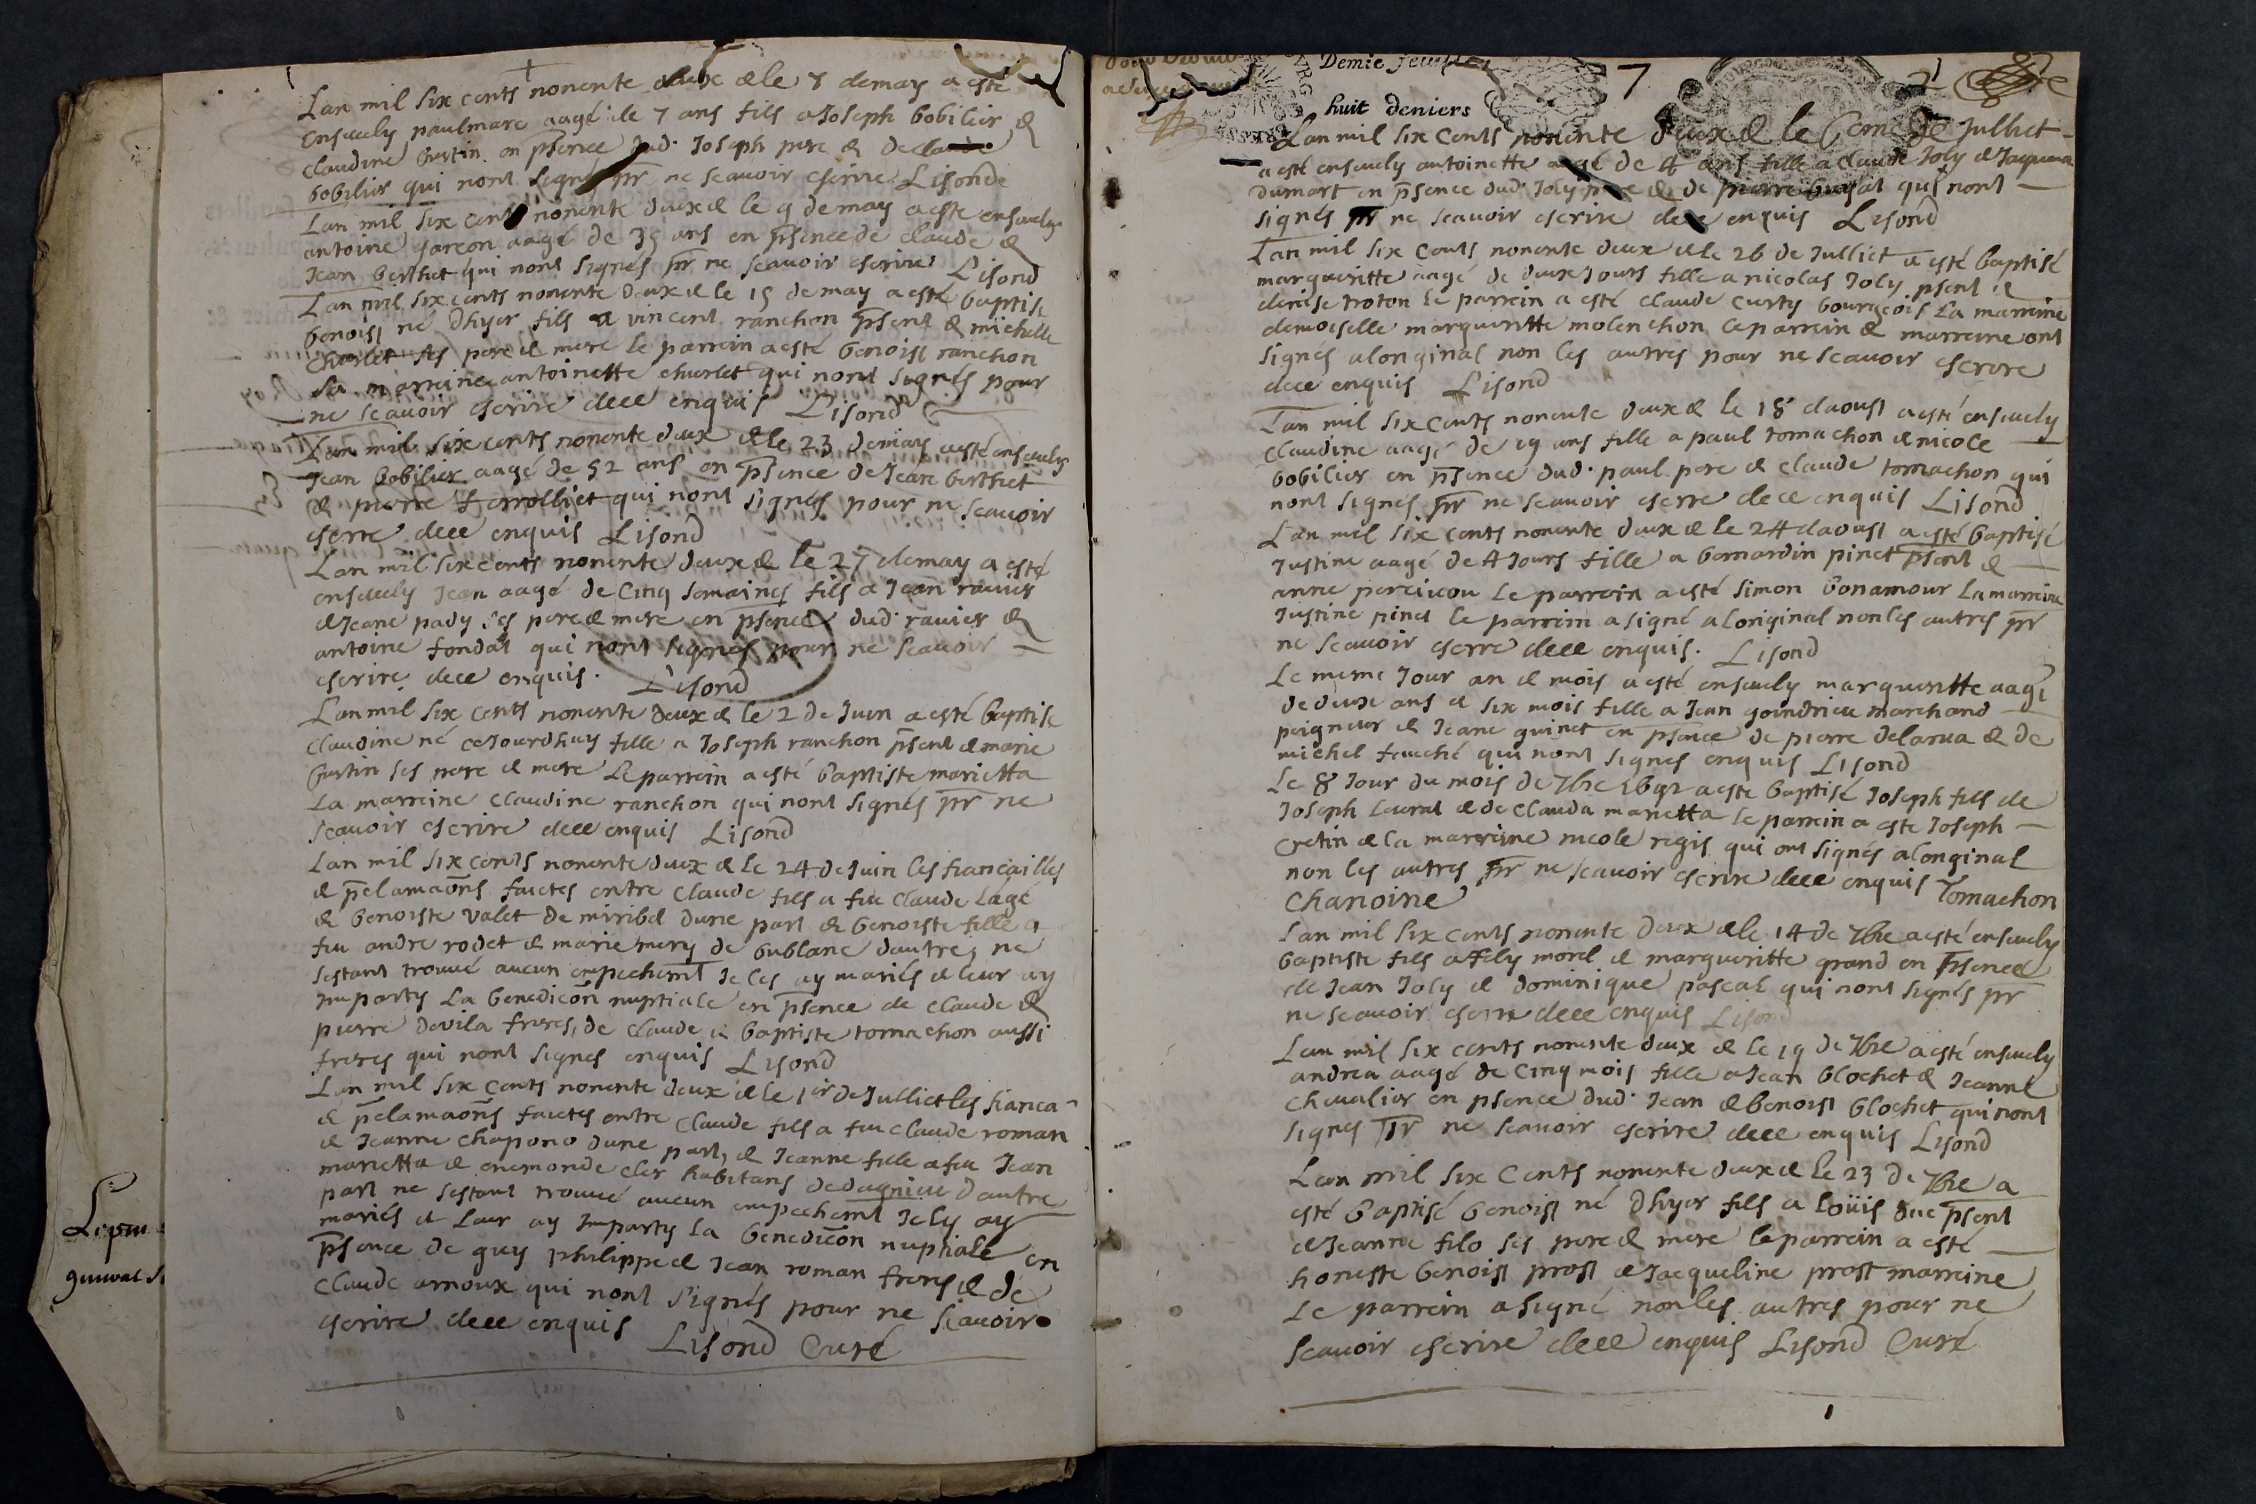 Lan mil six cents nonente deux & le 8 de may a esté
enseuely paulmarc aagé de 7 ans fils a Joseph bobilier &
claudine Gustin en p̄sence dud. Joseph pere & de claude
bobilier qui nont signé pr̄ ne scauoir escrire Lisonde
Lan mil six cents nonente deux & le 9 de may a esté enseuely
antoine garcon aagé de 35 ans en p̄sence de claude &
Jean berthet qui nont signés pr̄ ne scauoir escrire Lisond
Lan mil six cents nonente deux & le 15 de may a esté baptisé
benoist né dhyer fils a vincent ranchon p̄sent & michelle
charlet ses pere & mere le parrein a esté benoist ranchon
La marreine antoinette charlet qui nont signés pour
ne scauoir escrire dece enquis Lisond
Lan mil six cents nonente deux & le 23 demay a esté enseuely
Jean bobilier aagé de 52 ans en p̄sence de Jean berthet
& pierre qui nont signés pour ne scauoir
escrire dece enquis Lisond
Lan mil six cents nonente deux & le 27 demay a esté
enseuely Jean aagé de cinq semaines fils a Jean rauier
& Jeane pady ses pere & mere en p̄sence dud. rauier &
antoine fondat qui nont signés pour ne scauoir
escrire dece enquis. Lisond
Lan mil six cents nonente deux & le 2 de Juin a esté baptisé
claudine né ceJourdhuy fille a Joseph ranchon p̄sent & marie
Gustin ses pere & mere Le parrein a esté baptiste marietta
La marreine claudine ranchon qui nont signés pr̄ ne
scauoir escrire dece enquis Lisond
Lan mil six cents nonente deux & le 24 de Juin les fiancailles
& p̄clamaōns faictes entre claude fils a feu claude Lagé
& benoiste valet de miribel dune part & benoiste fille a
feu andre rodet & marie mery de bublane dautre, ne
sestant trouué aucun empechem̄t Je les ay mariés & leur ay
Imparty La benedicōn nuptiale en p̄sence de claude &
pierre devila freres, de claude & baptiste tomachon aussi
freres qui nont signes enquis Lisond
Lan mil six cents nonente deux & le 1er de Julliet les fianca
& p̄clamaōns faictes entre claude fils a feu claude roman
& Jeanne chapono dune part, & Jeanne fille a feu Jean
marietta & enemonde cler habitans dedagnieu dautre
part ne sestant trouué aucun empechem̄t Je ly ay
mariés & Leur ay Imparty la benedicōn nuptiale en
p̄sence de guy philippe & Jean roman freres & de
claude arnoux qui nont signés pour ne scauoir
escrire dece enquis Lisond Curé
Demie feuille
huit deniers
7
Lan mil six cents nonente deux & le 6eme de Julliet
a esté enseuely antoinette aagé de 4 ans fille a claude Joly & Jaquema
dumart en p̄sence dud. Joly pere & de pierre qui nont
signés pr̄ ne scauoir escrire dece enquis Lisond
Lan mil six cents nonente deux & le 26 de Julliet a esté baptisé
margueritte aagé de deux Jours fille a nicolas Joly p̄sent &
denise troton Le parrein a esté claude curty bourgeois La marreine
demoiselle margueritte molenchon Le parrein & marreine ont
signés aloriginal non les autres pour ne scauoir escrire
dece enquis Lisond
Lan mil six cents nonente deux & le 18 daoust a esté enseuely
Claudine aagé de 19 ans fille a paul tomachon & nicole
bobilier en p̄sence dud. paul pere & claude tomachon qui
nont signés pr̄ ne scauoir escrire dece enquis Lisond
Lan mil six cents nonente deux & le 24 daoust a esté baptisé
Justine aagé de 4 Jours fille a bernardin pinet p̄sent &
anne Le parrein a esté simon bonamour La marreine
Justine pinet le parrein a signé aloriginal non les autres pr̄
ne scauoir escrire dece enquis. Lisond
Le meme Jour an & mois a esté enseuely margueritte aagé
de deux ans & six mois fille a Jean goindrieu marchand
peigneur & Jeane guinet en p̄sence de pierre delarua & de
michel fouché qui nont signes enquis Lisond
Le 8 Jour du mois de 7bre 1692 a este baptisé Joseph fils de
Joseph Leurat & de Clauda marietta le parrein a este Joseph
cretin & la marreine nicole regis qui ont signés aloriginal
non les autres pr̄ ne scauoir escrire dece enquis Tomachon
Chanoine
Lan mil six cents nonente deux & le 14 de 7bre a esté enseuely
baptiste fils a Fely morel & margueritte grand en p̄sence
de Jean Joly & dominique pascal qui nont signés pr̄
ne scauoir escrire dece enquis Lisond
Lan mil six cents nonente deux & le 19 de 7bre a esté enseuely
andrea aagé de cinq mois fille a Jean blochet & Jeanne
cheualier en p̄sence dud. Jean & benoist blochet qui nont
signes pr̄ ne scauoir escrire dece enquis Lisond
Lan mil six cents nonente deux & le 23 de 7bre a
esté baptisé benoist né dhyer fils a loüis duc p̄sent
& Jeanne filo ses pere & mere le parrein a esté
honeste benoist prost & Jacqueline prost marreine
Le parrein a signé non les autres pour ne
scauoir escrire dece enquis Lisond Curé